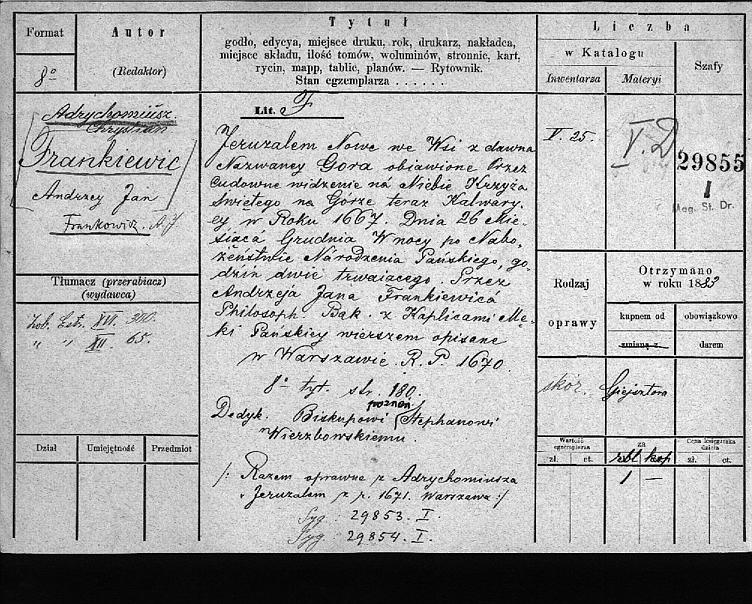 Format
8o
Autor
(Redaktor)
Tytuł
godło, edycya, miejsce druku, rok, drukarz, nakładca,
miejsce składu, ilość tomów, woluminów, stronnic, kart,
rycin, mapp, tablic, planów. — Rytownik.
Stan egzemplarza . . . . . .
Liczba
w Katalogu
Inwentarza
Materyi
Szafy
Adrychomiusz
Chrystian
[Frankiewic]
Andrzey Jan
Frankowicz A J
Tłumacz (przerabiacz)
(wydawca)
Zob. Estr. XVI. 310.
" " XII. 65.
Dział
Umiejętność
Przedmiot
Lit. F
Jeruzalem Nowe we Wsi z dawna
Nazwaney Gora obiawione Przez
Cudowne widzenie na Niebie Krzyża
Swiętego na Gorze teraz Kalwary-
ey w Roku 1667. Dnia 26 Mie-
siącá Grudnia W nocy po Nabo-
żeństwie Národzenia Páńskiego, go-
dzin dwie trwaiacego. Przez
Andrzeja Jana Frankiewicá
Philosoph. Bak. z Kaplicami Mę-
ki Páńskiey wierszem opisane
w Warszawie. R. P. 1670.
8o tyt. str. 180.
Dedyk. Biskupowi poznań. Stephanowi
Wierzbowskiemu.
/: Razem oprawne z Adrychomiusza
Jeruzalem z r. 1671. Warszawa :/
Syg. 29853. I.
Syg. 29854. I.
V. 25.
V. D
29855
I
Mag. St. Dr.
Rodzaj
oprawy
Otrzymano
w roku 1883
kupnem od
zmianą z
obowiązkowo
darem
skór.
Giejsztora
Wartość
egzemplarza
za
Cena księgarska
dzieła
zł.
ct.
rbl
kop
zł.
ct.
1
—